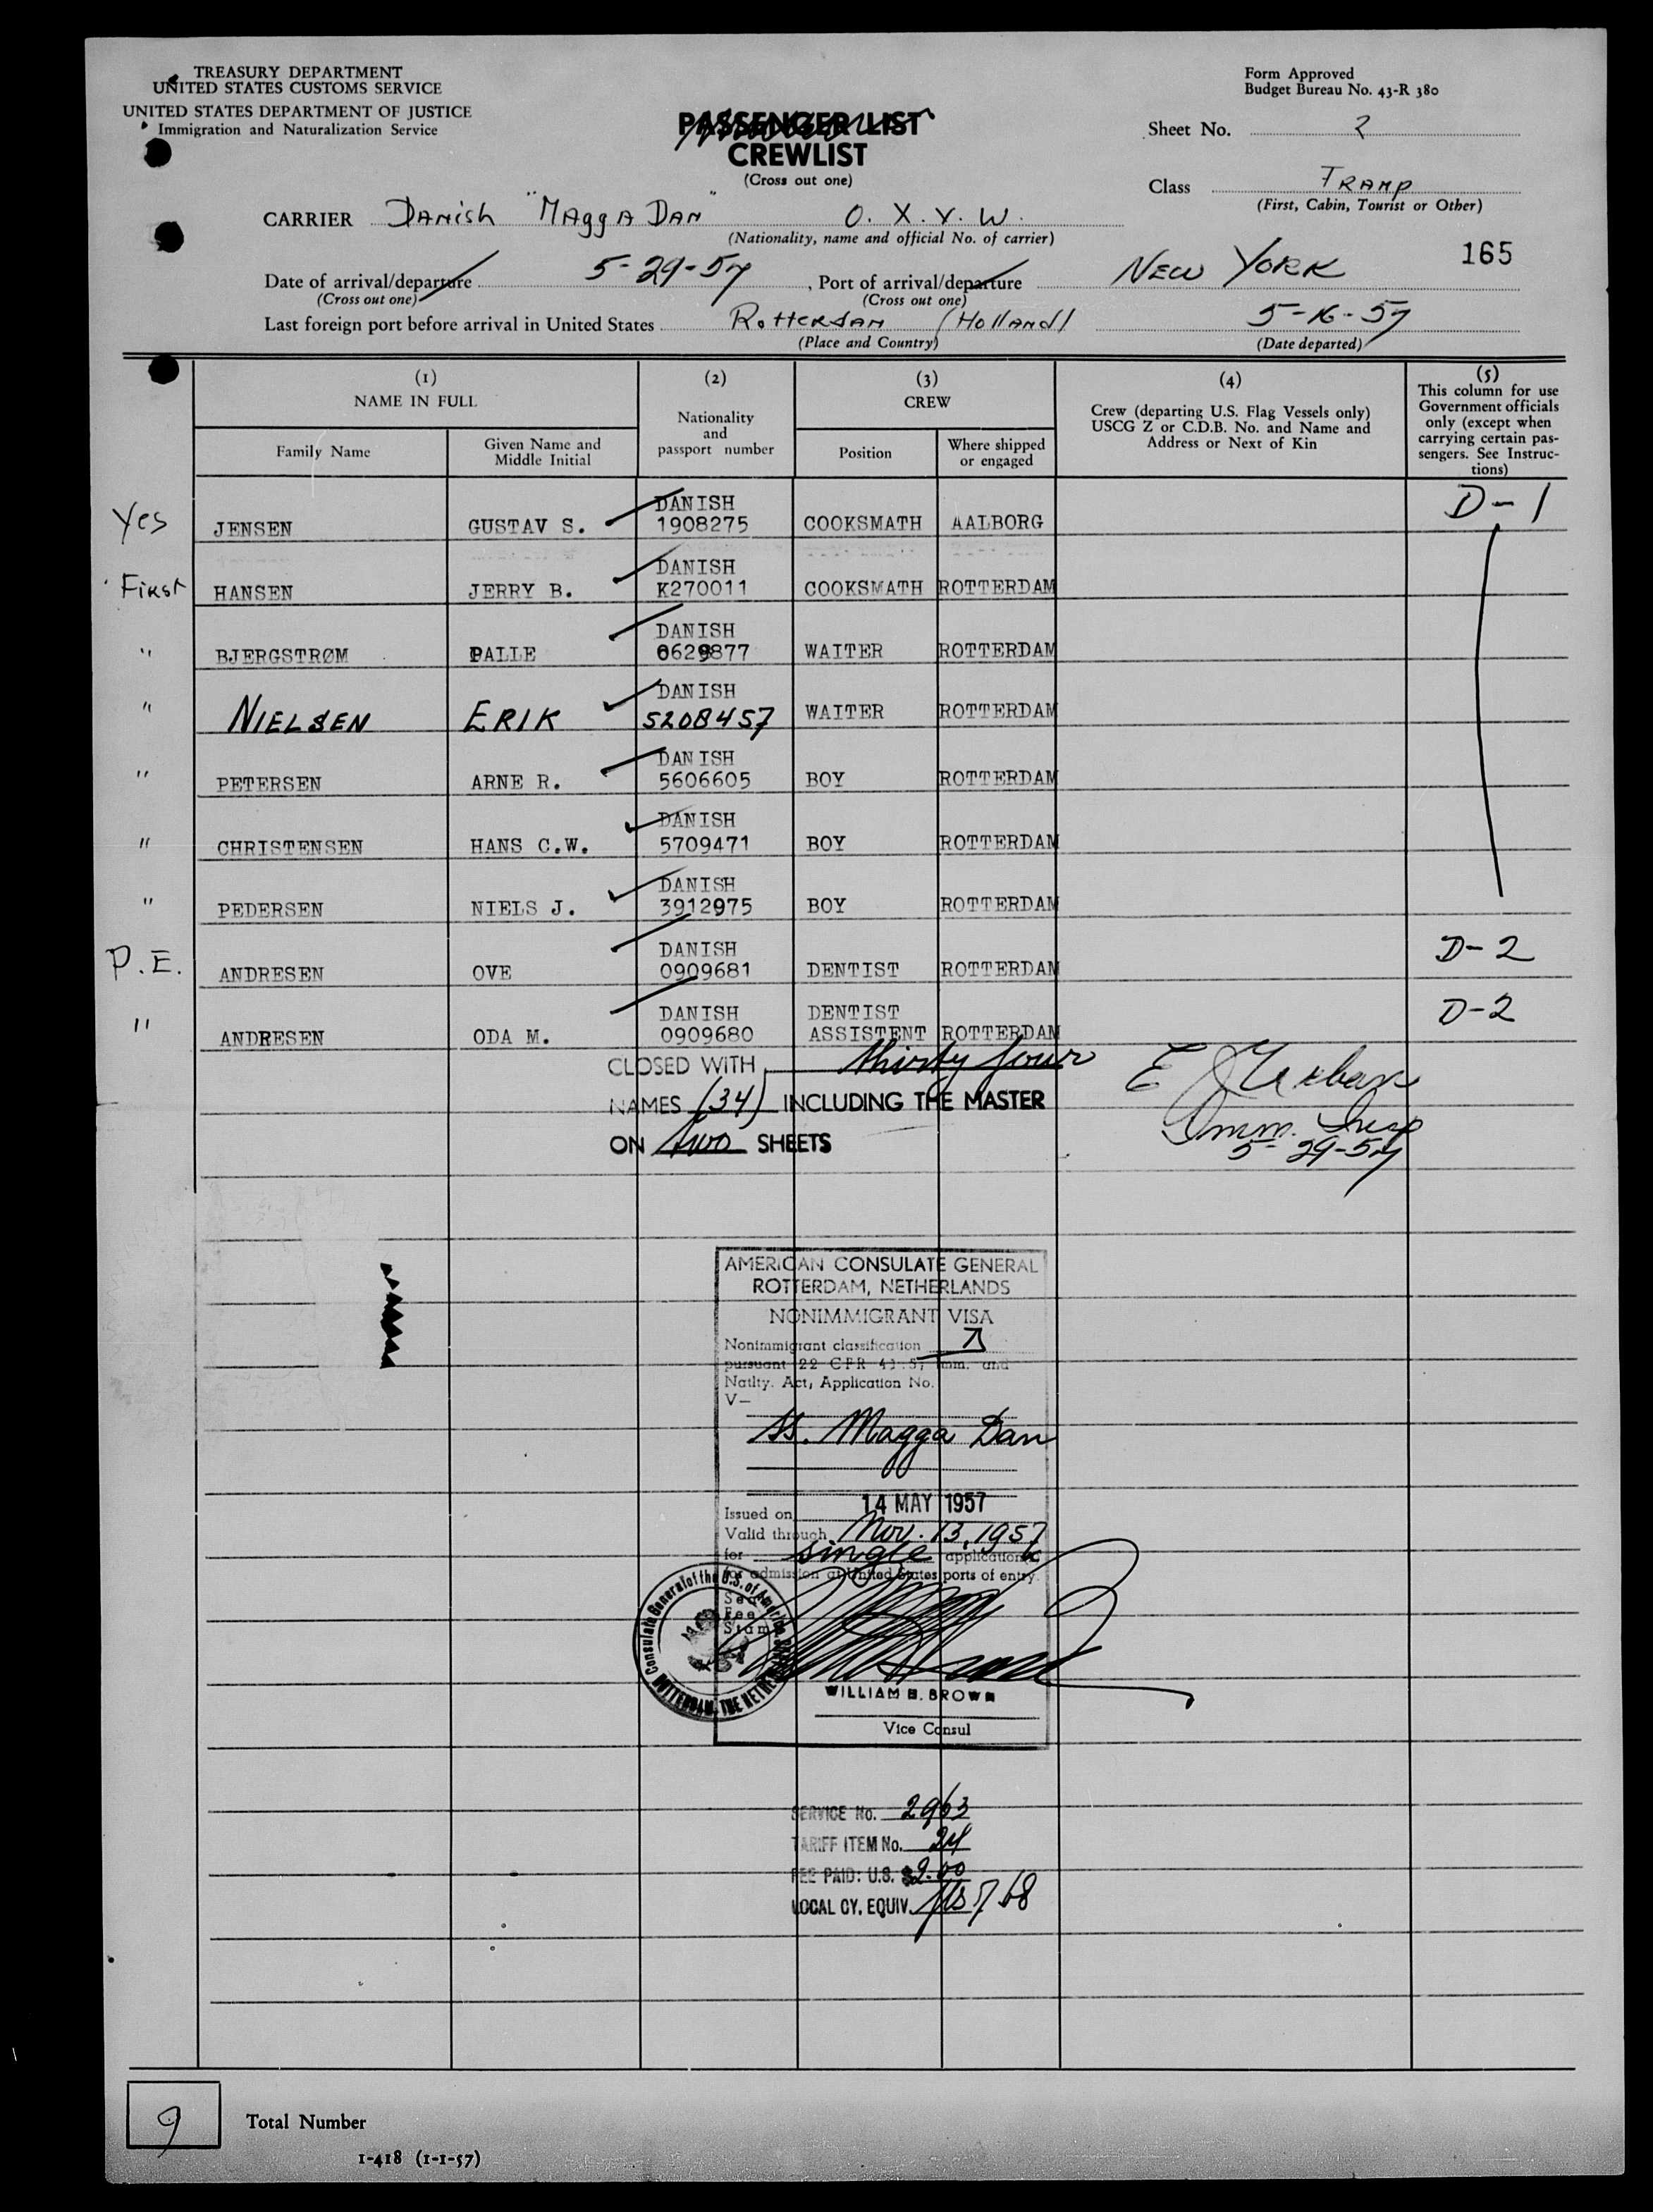 TREASURY DEPARTMENT
UNITED STATES CUSTOMS SERVICE
UNITED STATES DEPARTMENT OF JUSTICE
Immigration and Naturalization Service
Form Approved
Budget Bureau No. 43-R 380
PASSENGER LIST
CREWLIST
(Cross out one)
Sheet No. 2
Class TRAMP
(First, Cabin, Tourist or Other)
CARRIER Danish "Magga Dan" O. X. V. W.
(Nationality, name and official No. of carrier)
165
Date of arrival/departure 5-29-57, Port of arrival/departure NEW YORK
(Cross out one) (Cross out one)
Last foreign port before arrival in United States Rotterdam (Holland) 5-16-57
(Place and Country) (Date departed)
(1) (2) (3) (4) (5)
NAME IN FULL
Family Name
Given Name and Middle Initial
Nationality and passport number
CREW
Position
Where shipped or engaged
Crew (departing U.S. Flag Vessels only)
USCG Z or C.D.B. No. and Name and
Address or Next of Kin
This column for use
Government officials
only (except when
carrying certain pas-
sengers. See Instruc-
tions)
Yes JENSEN GUSTAV S. DANISH 1908275 COOKSMATH AALBORG D-1
First HANSEN JERRY B. DANISH K270011 COOKSMATH ROTTERDAM
" BJERGSTRØM PALLE DANISH 0629877 WAITER ROTTERDAM
" NIELSEN ERIK DANISH 5208457 WAITER ROTTERDAM
" PETERSEN ARNE R. DANISH 5606605 BOY ROTTERDAM
" CHRISTENSEN HANS C.W. DANISH 5709471 BOY ROTTERDAM
" PEDERSEN NIELS J. DANISH 3912975 BOY ROTTERDAM
P.E. ANDRESEN OVE DANISH 0909681 DENTIST ROTTERDAM D-2
" ANDRESEN ODA M. DANISH 0909680 DENTIST ASSISTENT ROTTERDAM D-2
CLOSED WITH thirty four
NAMES (34) INCLUDING THE MASTER
ON two SHEETS
Imm. Insp
5-29-57
AMERICAN CONSULATE GENERAL
ROTTERDAM, NETHERLANDS
NONIMMIGRANT VISA
Nonimmigrant classification
pursuant 22 CFR 41.57 Imm. and
Natlty. Act, Application No.
V-
SS. Magga Dan
Issued on 14 MAY 1957
Valid through Nov. 13, 1957
for single application
for admission at United States ports of entry.
See
Fee
Stamp
Consulate General of the U.S. of America
ROTTERDAM, THE NETHERLANDS
WILLIAM B. BROWN
Vice Consul
SERVICE No. 2963
TARIFF ITEM No. 24
FEE PAID: U.S. $2.00
LOCAL CY. EQUIV. fls 7.68
9 Total Number
I-418 (1-1-57)